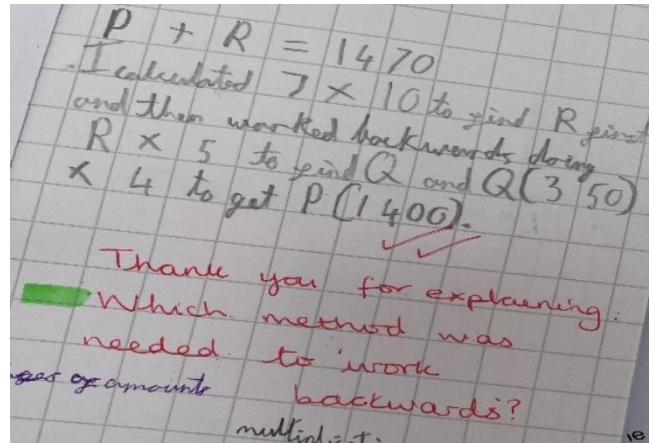 P + R = 1470
I calculated 7 × 10 to find R first
and then worked backwards doing
R × 5 to find Q and Q(350)
× 4 to get P (1400).
Thank you for explaining.
Which method was
needed to work
of amounts
backwards?